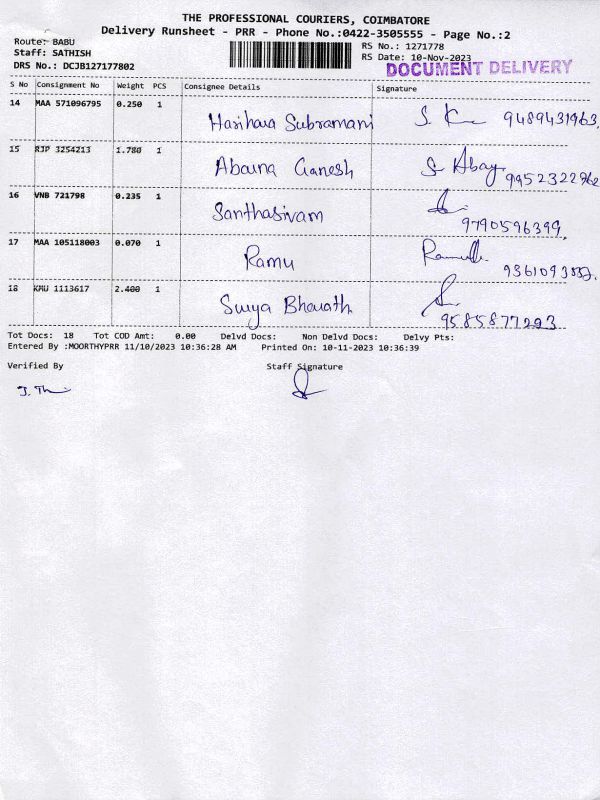 THE PROFESSIONAL COURIERS, COIMBATORE
Delivery Runsheet - PRR - Phone No.:0422-3505555 - Page No.:2
Route: BABU
RS No.: 1271778
Staff: SATHISH
RS Date: 10-Nov-2023
DRS No.: DCJB127177802
DOCUMENT DELIVERY
S No Consignment No Weight PCS Consignee Details Signature
14 MAA 571096795 0.250 1 Harihara Subramani S. K 9489431963.
15 RJP 3254213 1.780 1 Abarna Ganesh S Abay 9952322962
16 VNB 721798 0.235 1 Santhasivam 9790596399.
17 MAA 105118003 0.070 1 Ramu
18 KMU 1113617 2.400 1 Surya Bharath 9585877293
Tot Docs: 18 Tot COD Amt: 0.00 Delvd Docs: Non Delvd Docs: Delvy Pts:
Entered By :MOORTHYPRR 11/10/2023 10:36:28 AM Printed On: 10-11-2023 10:36:39
Verified By Staff Signature